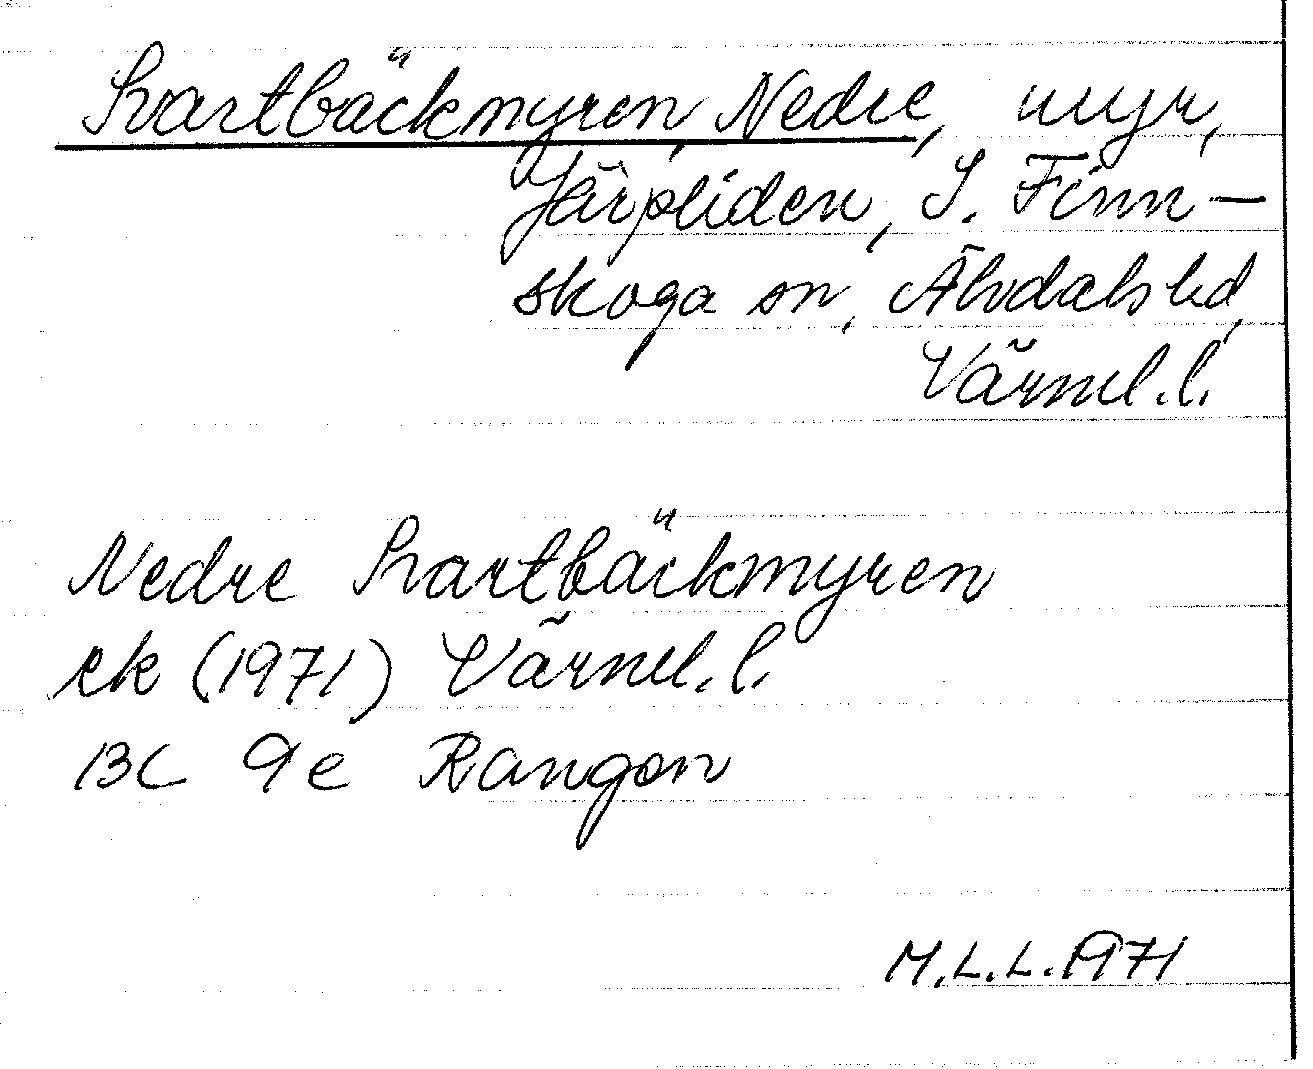 Svartbäckmyren, Nedre, myr,
Järpliden, S. Finn-
skoga sn, Älvdals hd,
Värml. l.
Nedre Svartbäckmyren
ek (1971) Värml. l.
13C 9e Rangen
M.L.L. 1971